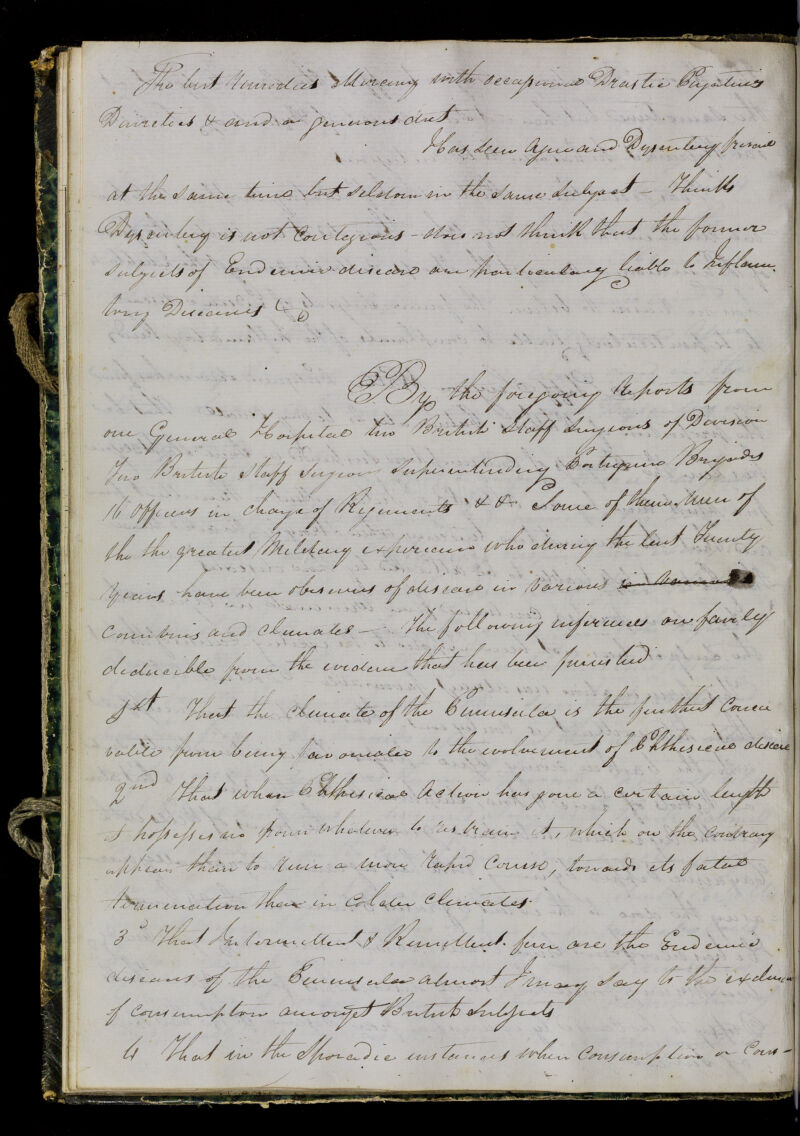 The best remedies Mercury with occasional Drastic Purgatives
Diuretics & and a generous diet
Has seen Ague and Dysentery prevail
at the same time but seldom in the same subject – Thinks
Dysentery is not contagious – does not think that the former
subjects of Endemic disease are particularly liable to Inflam.
tory Diseases &c
By the foregoing reports from
one General Hospital two British Staff Surgeons of Division
Two British Staff Surgeons Superintending Portuguese Brigades
16 officers in charge of Regiments && Some of them Men of
the the greatest Military experience who during the last Twenty
years have been observers of disease in various in various
countries and climates – The following inferences are fairly
deducible from the evidence that has been furnished
1st That the climate of the Peninsula is the furthest concei
vable from being favorable to the evolvement of Phthisical disease
2nd That when Phthisical Action has gone a certain length
it possesses no power whatever to restrain it, which on the contrary
appears then to run a more rapid course, towards its fatal
termination than in colder climates
3d That Intermittent & Remittent fever are the Endemic
diseases of the Peninsula almost I may say to the exclusion
of consumption amongst British Subjects
4 That in the Sporadic instances when consumption or Cons-